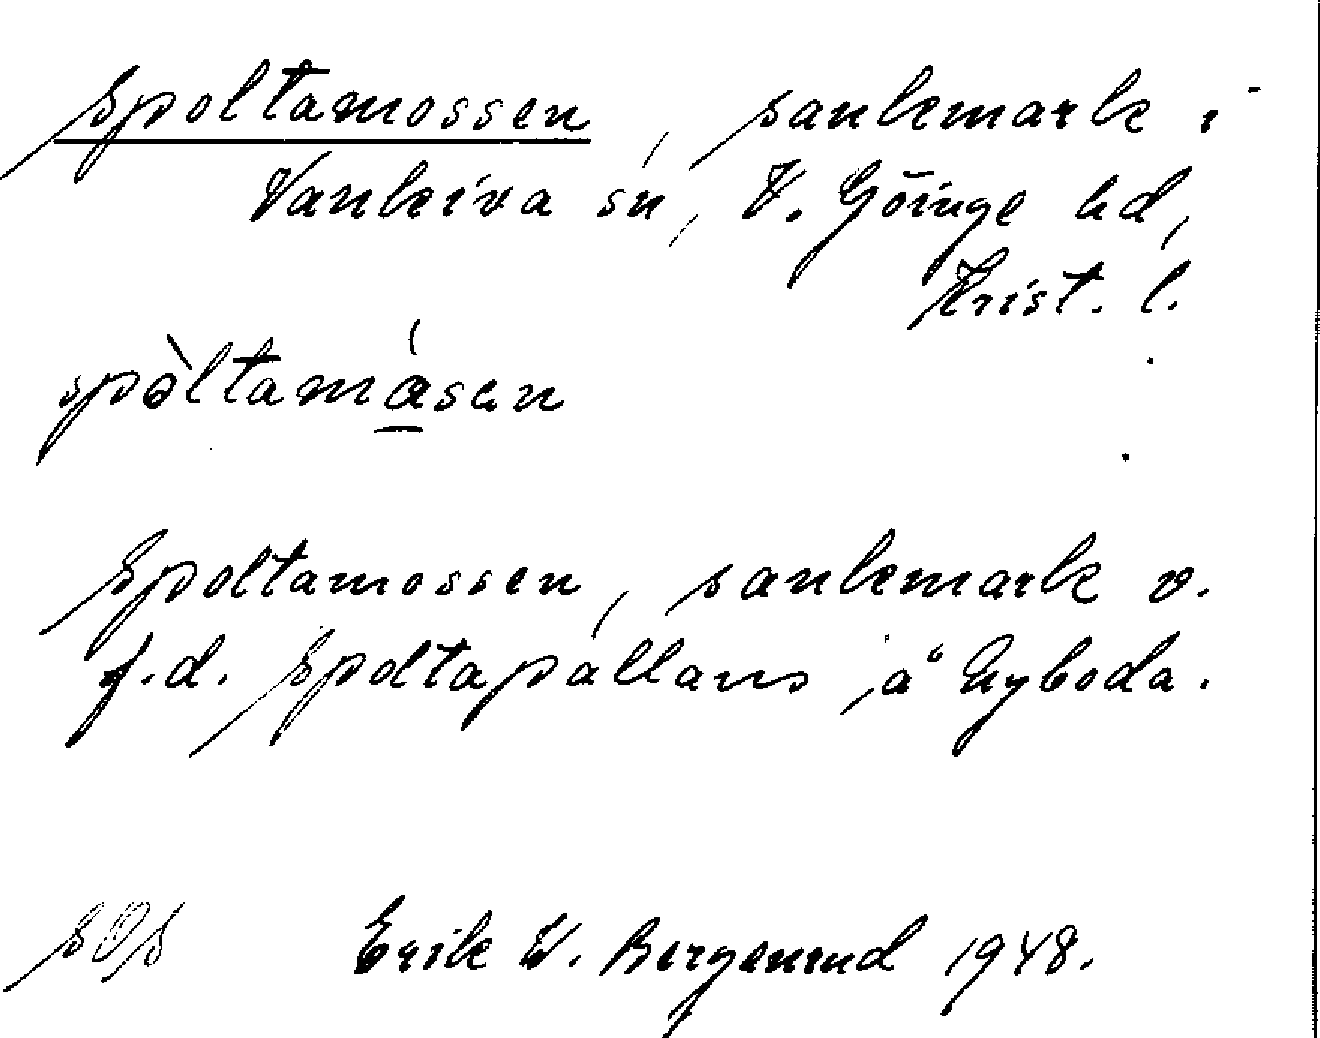 Spoltamossen, sankmark i
Vankiva sn, V. Göinge hd,
Krist. l.
spòltamåsen
Spoltamossen, sankmark v.
f.d. Spoltapállans å Gyboda.
Erik W. Bergenrud 1948.